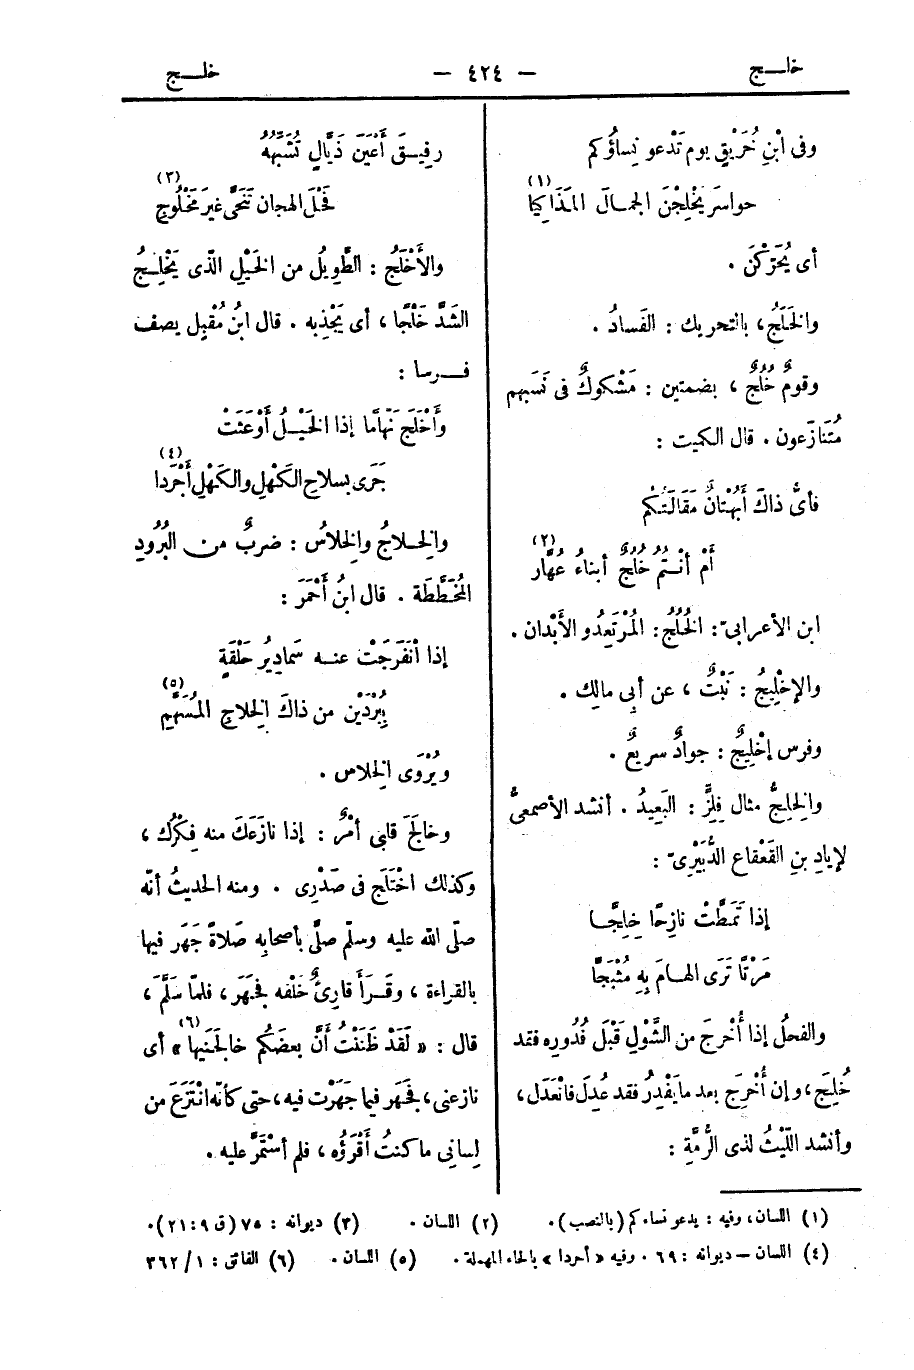 خلـــج
— ٤٢٤ —
خلـــج
وفى ابْنِ خُرَيْقٍ يوم تَدْعو نِساؤُكم
حواسرَ يَخْلِجْنَ الجمـالَ المَذَاكِيَا (١)
أى يُحَرِّكْنَ .
والخَلَجُ، بالتحريك : الفَسادُ .
وقومٌ خُلُجٌ ، بضمتين : مَشْكوكٌ فى نَسَبِهم
مُتَنَازَعون . قال الكميت :
فأىُّ ذاكَ أَبُهْتانٌ مَقَالَتُكم
أَمْ أَنْتُمُ خُلُجٌ أبناءُ عُهَّارِ (٢)
ابن الأعرابىّ : الخُلُجُ: المُرْتَعِدُو الأَبْدان .
والإخْلِيجُ : نَبْتٌ ، عن أبى مالِك .
وفرس إخْلِيجٌ : جوادٌ سريعٌ .
والخِلِجُّ مثال فِلِزٍّ : البَعِيدُ . أنشد الأصمعىُّ
لإيادِ بنِ القَعْقاعِ الدُّبَيْرِىّ :
إذا تَمَطَّتْ نازِحًا خِلِجَّـا
مَرْتًا تَرَى الهـامَ بِهِ مُثْبَجَّا
والفحلُ إذا أُخْرِجَ من الشَّوْلِ قَبْلَ فُدُورِه فقد
خُلِجَ ، وإن أُخْرِجَ بعد ما يَفْدِرُ فقد عُدِلَ فانْعَدَل ،
وأنشد اللّيْثُ لذى الرُّمَّةِ :
رفِيـقَ أَعْيَنَ ذَيَّالٍ تُشَبِّهُهُ
فَحْلَ الهِجانِ تَنَحَّى غيرَ مَخْلُوجِ (٣)
والأَخْلَجُ : الطَّوِيلُ من الخَيْلِ الّذى يَخْلِجُ
الشَّدَّ خَلْجًا ، أى يَجْذِبه . قال ابنُ مُقْبِل يصف
فـرسا :
وَأَخْلَجَ نَهَّامًا إذا الخَيْـلُ أَوْعَنَتْ
جَرَى بسلاحِ الكَهْلِ والكَهْلِ أَجْرَدا (٤)
والخِـلاجُ والخِلاسُ : ضربٌ من البُرُودِ
المُخَطَّطَة . قال ابنُ أَحْمَرَ :
إذا انْفَرَجَتْ عنـه سَمادِيرُ حَلْقَةٍ
بِبُرْدَيْنِ من ذاكَ الخِلاجِ المُسَهَّمِ (٥)
ويُرْوَى الخلاس .
وخالَجَ قلبى أَمْرٌ : إذا نازَعَكَ منه فِكْرُك ،
وكذلك اخْتَلَج فى صَدْرِى . ومنه الحديثُ أنّه
صلّى الله عليه وسلّم صلَّى بأصحابِه صَلاةً جَهَر فيها
بالقراءة ، وقَـرَأَ قارِئٌ خَلْفه فجَهَر ، فلمّا سَلَّمَ ،
قال : « لَقَدْ ظَنَنْتُ أَنَّ بعضَكم خالَجَنيها (٦)» أى
نازعنى ، فجَهَر فيما جَهَرْت فيه ، حتى كأنّه انْتَزَعَ من
لِسانِى ما كنتُ أَقْرَؤُه ، فلم أَسْتَمِرَّ عليه .
(١) اللسان، وفيه : يدعو نساءكم (بالنصب). (٢) اللسان . (٣) ديوانه : ٧٥ (ق ٩ : ٢١).
(٤) اللسان – ديوانه : ٦٩ . وفيه « أحردا » بالحاء المهملة . (٥) اللسان . (٦) الفائق : ١ / ٣٦٢